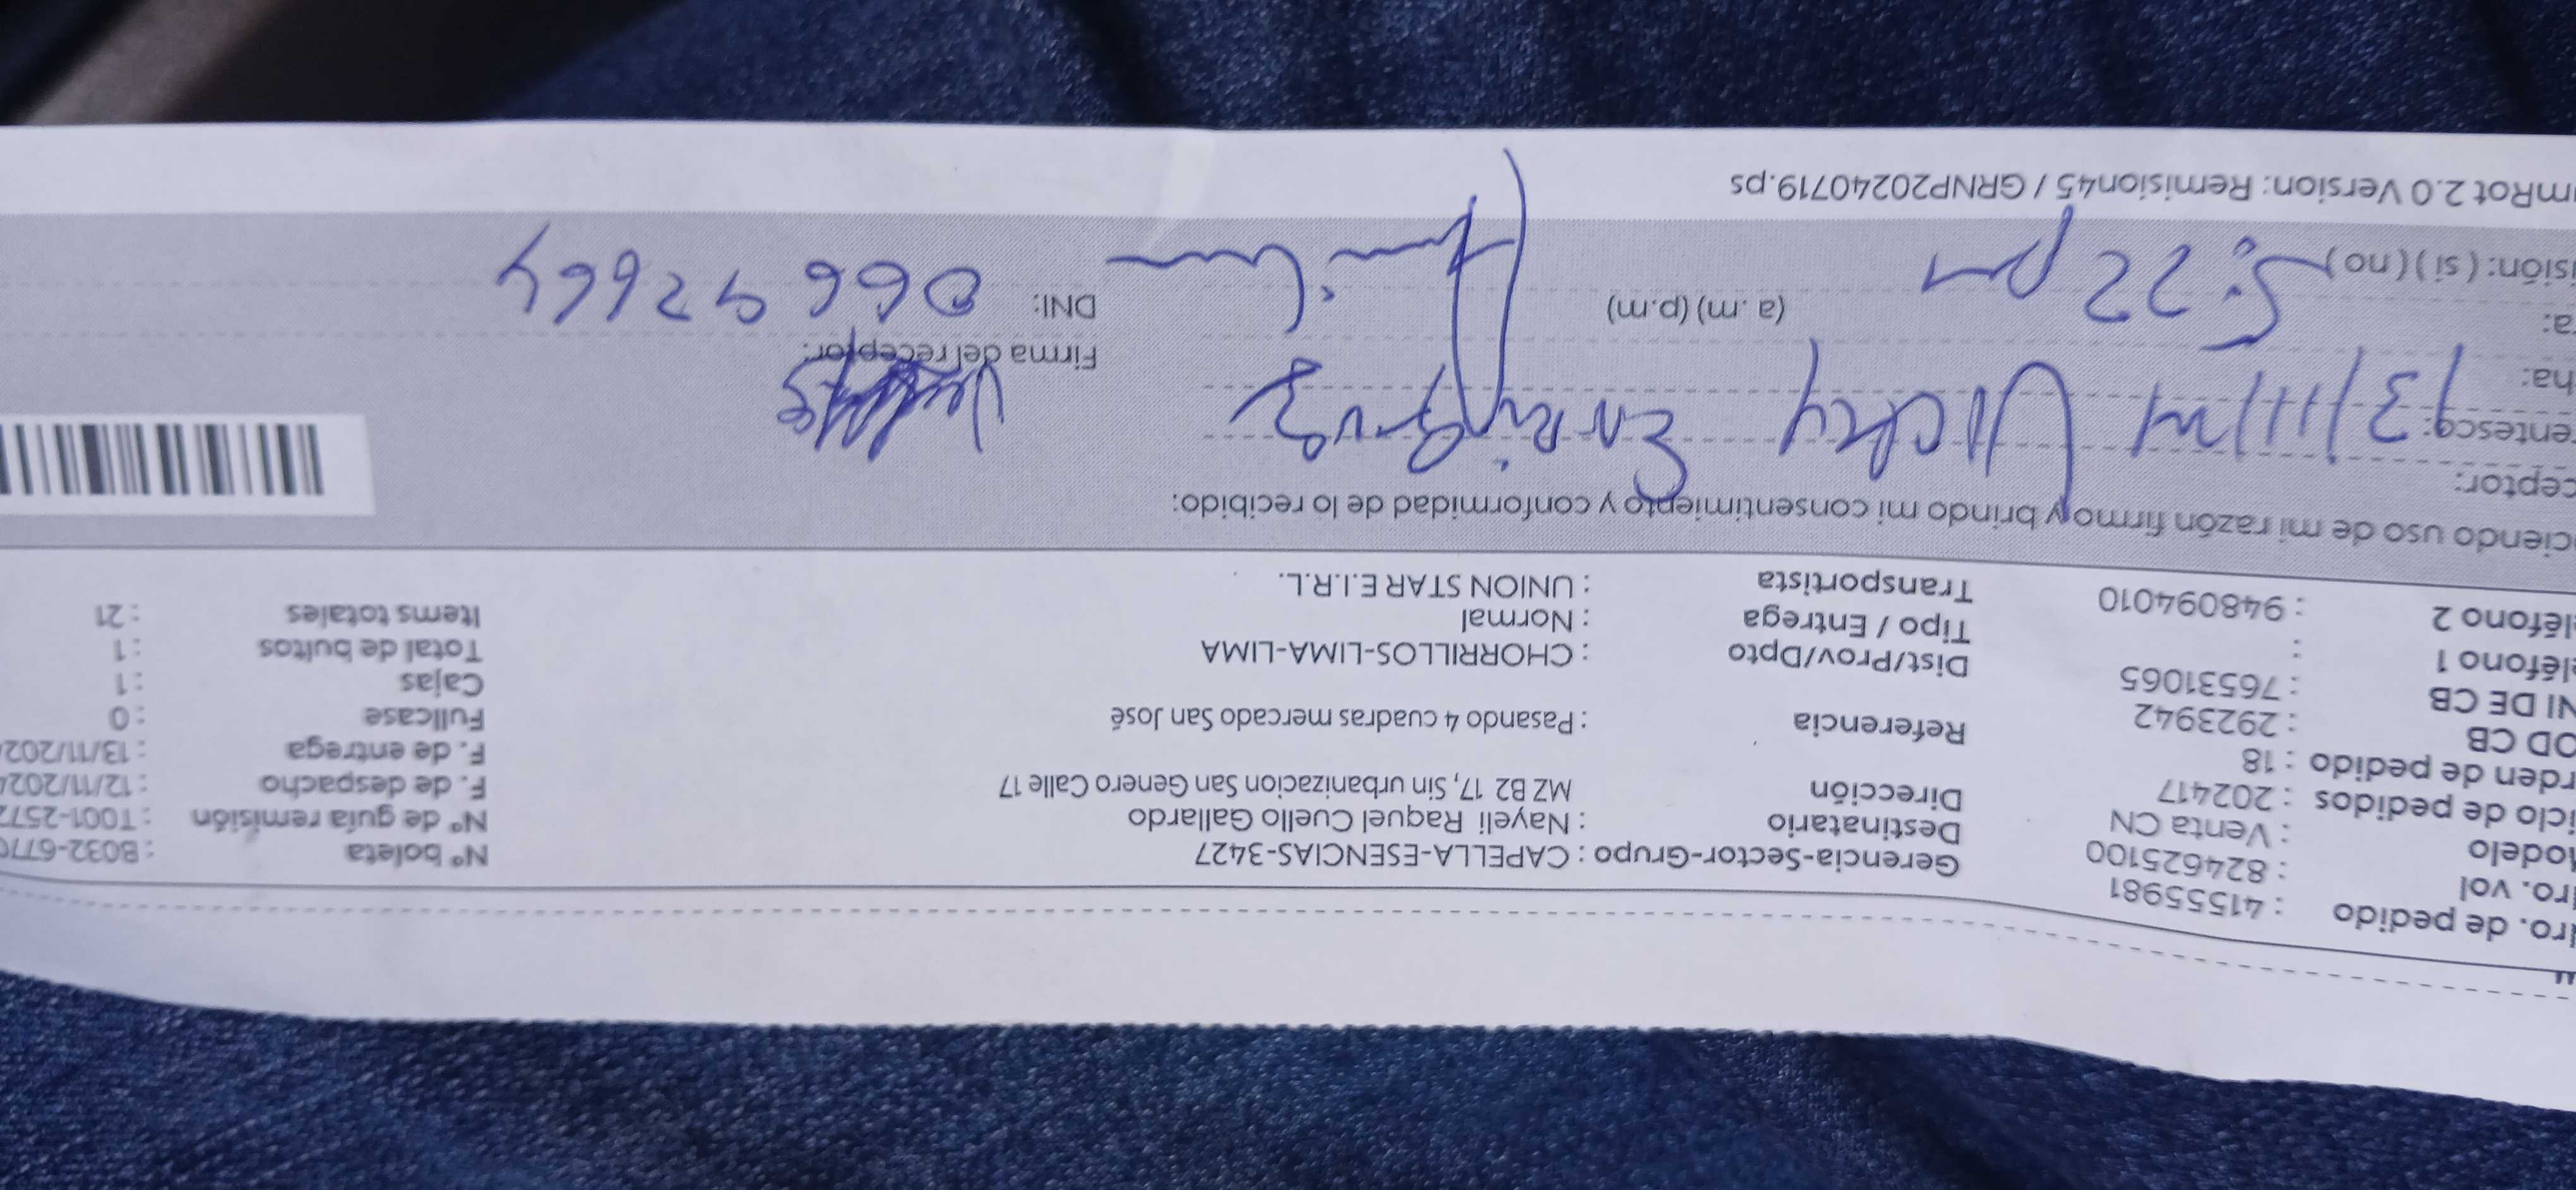 Nro. de pedido : 41555981
Nro. vol : 824625100
Modelo : Venta CN
Ciclo de pedidos : 202417
Orden de pedido : 18
COD CB : 2923942
DNI DE CB : 76531065
Teléfono 1 :
Teléfono 2 : 948094010
Gerencia-Sector-Grupo : CAPELLA-ESENCIAS-3427
Destinatario : Nayeli Raquel Cuello Gallardo
Dirección MZ B2 17, Sin urbanizacion San Genero Calle 17
Referencia : Pasando 4 cuadras mercado San José
Dist/Prov/Dpto : CHORRILLOS-LIMA-LIMA
Tipo / Entrega : Normal
Transportista : UNION STAR E.I.R.L.
Nº boleta : B032-6770
Nº de guía remisión : T001-2572
F. de despacho : 12/11/2024
F. de entrega : 13/11/202
Fullcase : 0
Cajas : 1
Total de bultos : 1
Items totales : 21
ciendo uso de mi razón firmo y brindo mi consentimiento y conformidad de lo recibido:
ceptor:
entesco:
ha: 13/11/
ra: 5:22 pm (a. m) (p.m)
isión: ( sí ) ( no )
Firma del receptor:
DNI: 066 92664
mRot 2.0 Version: Remision45 / GRNP20240719.ps